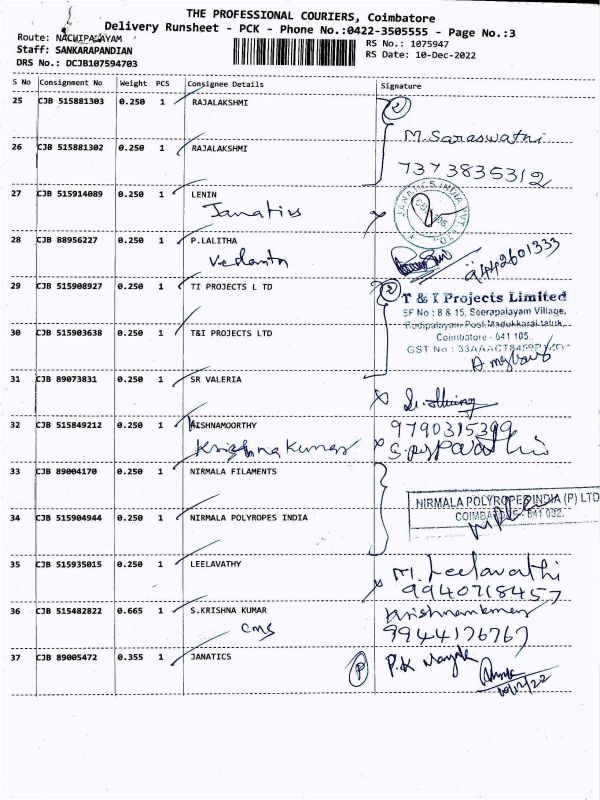 THE PROFESSIONAL COURIERS, Coimbatore
Delivery Runsheet - PCK - Phone No.:0422-3505555 - Page No.:3
Route: NACHIPALAYAM
RS No.: 1075947
Staff: SANKARAPANDIAN
RS Date: 10-Dec-2022
DRS No.: DCJB107594703
S No Consignment No Weight PCS Consignee Details Signature
25 CJB 515881303 0.250 1 RAJALAKSHMI
2
M. Saraswathi
26 CJB 515881302 0.250 1 RAJALAKSHMI
7373835312
27 CJB 515914089 0.250 1 LENIN
Janatics
JANATICS INDIA PVT. LTD.
28 CJB 88956227 0.250 1 P.LALITHA
Vedanta
9442601333
29 CJB 515908927 0.250 1 TI PROJECTS L TD
2
T & I Projects Limited
SF No : 8 & 15, Seerapalayam Village,
Post, Madukkarai taluk,
30 CJB 515903638 0.250 1 T&I PROJECTS LTD
Coimbatore - 641 105.
GST No : 33AAACT8459
31 CJB 89073831 0.250 1 SR VALERIA
32 CJB 515849212 0.250 1 KISHNAMOORTHY
9790315399
Krishna Kumar
33 CJB 89004170 0.250 1 NIRMALA FILAMENTS
NIRMALA POLYROPES INDIA (P) LTD
COIMBATORE - 641 032.
34 CJB 515904944 0.250 1 NIRMALA POLYROPES INDIA
35 CJB 515935015 0.250 1 LEELAVATHY
M. Leelavathi
9940718457
36 CJB 515482822 0.665 1 S.KRISHNA KUMAR
Krishnankumar
cms
9944176767
37 CJB 89005472 0.355 1 JANATICS
P
P.K
10/12/22